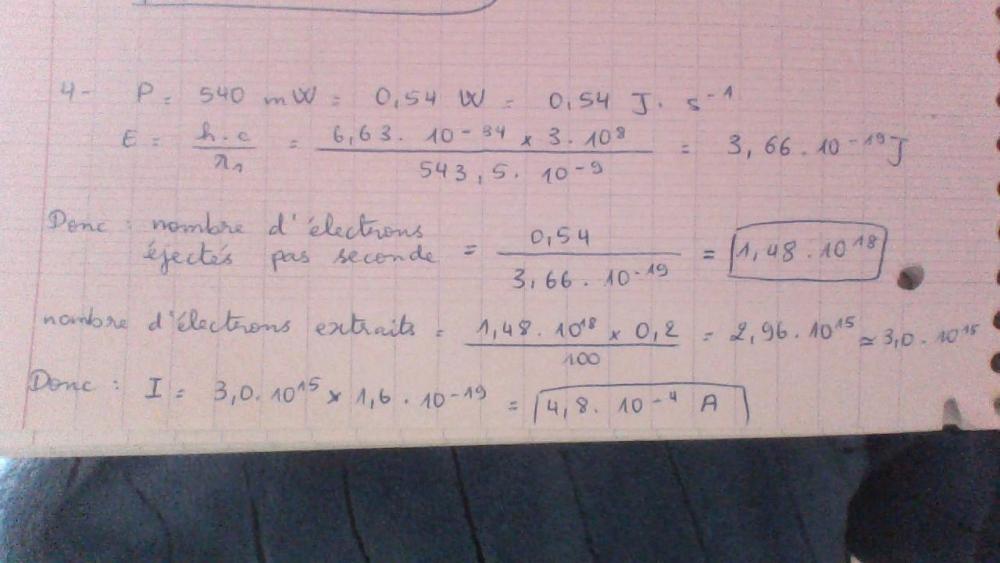 4- P = 540 mW = 0,54 W = 0,54 J. s⁻¹
E = h.c / λ₁ = 6,63. 10⁻³⁴ x 3. 10⁸ / 543,5. 10⁻⁹ = 3,66. 10⁻¹⁹ J
Donc : nombre d'électrons
éjectés pas seconde = 0,54 / 3,66. 10⁻¹⁹ = 1,48. 10¹⁸
nombre d'électrons extraits = 1,48. 10¹⁸ x 0,2 / 100 = 2,96. 10¹⁵ ≃ 3,0. 10¹⁵
Donc : I = 3,0. 10¹⁵ x 1,6. 10⁻¹⁹ = 4,8. 10⁻⁴ A